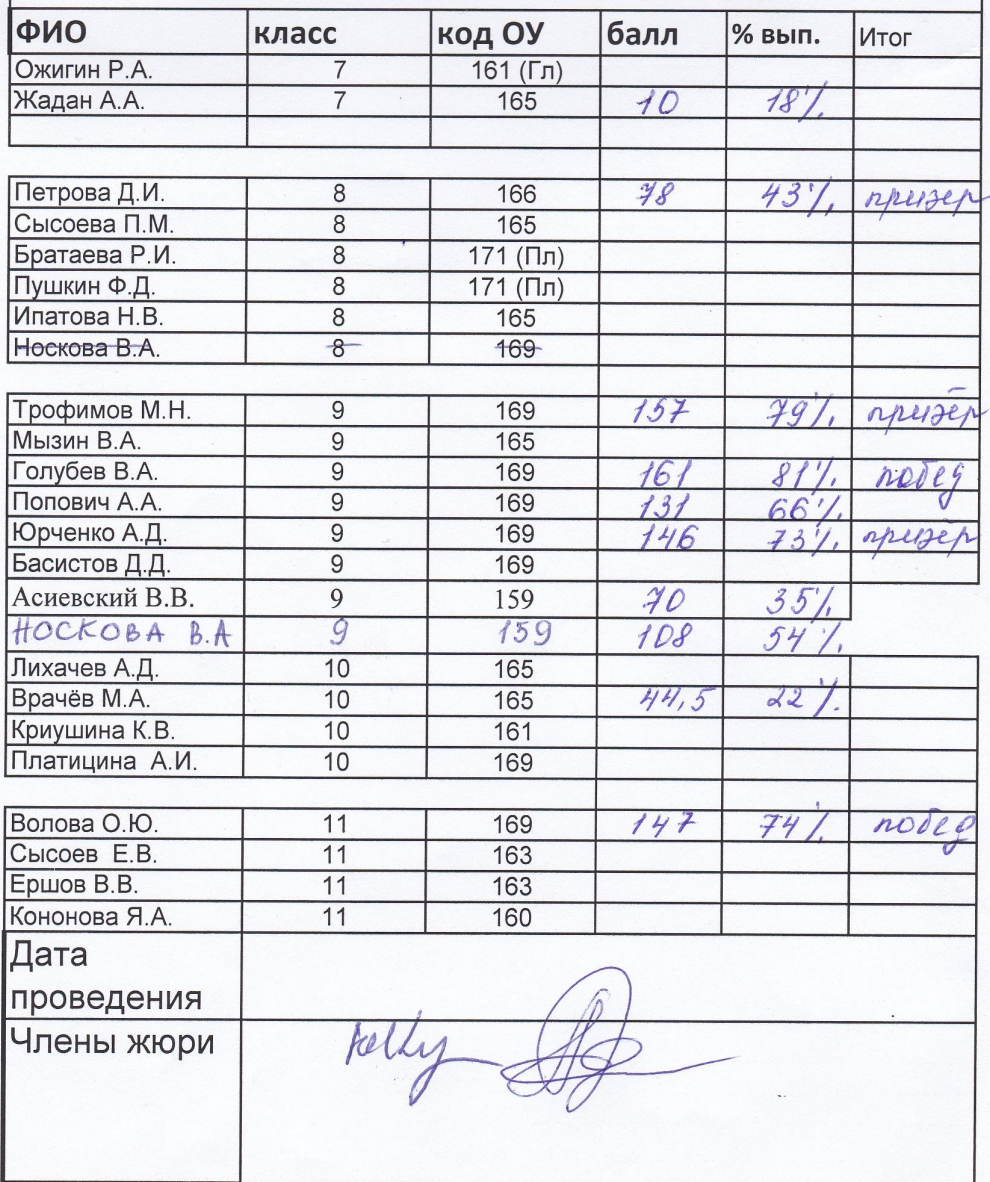 ФИО класс код ОУ балл % вып. Итог
Ожигин Р.А. 7 161 (Гл)
Жадан А.А. 7 165 10 18%
Петрова Д.И. 8 166 78 43% призёр
Сысоева П.М. 8 165
Братаева Р.И. 8 171 (Пл)
Пушкин Ф.Д. 8 171 (Пл)
Ипатова Н.В. 8 165
Носкова В.А. 8 169
Трофимов М.Н. 9 169 157 79% призёр
Мызин В.А. 9 165
Голубев В.А. 9 169 161 81% побед
Попович А.А. 9 169 131 66%
Юрченко А.Д. 9 169 146 73% призёр
Басистов Д.Д. 9 169
Асиевский В.В. 9 159 70 35%
НОСКОВА В.А 9 159 108 54%
Лихачев А.Д. 10 165
Врачёв М.А. 10 165 44,5 22%
Криушина К.В. 10 161
Платицина А.И. 10 169
Волова О.Ю. 11 169 147 74% побед
Сысоев Е.В. 11 163
Ершов В.В. 11 163
Кононова Я.А. 11 160
Дата
проведения
Члены жюри